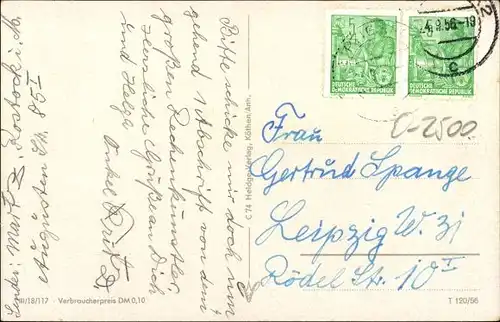 Bitte schicke mir doch um-
gehend 1 Abschrift von dem
großen Rechenkünstler.
Herzliche Grüße an Dich
und Helga
Onkel Fritz
Rostock i. M.
C 74 Heldge-Verlag, Köthen/Anh.
III/18/117 · Verbraucherpreis DM 0,10
4.9.56.-19
DEUTSCHE
DEMOKRATISCHE REPUBLIK
DEUTSCHE
DEMOKRATISCHE REPUBLIK
C-2500
Frau
Gertrud Spange
Leipzig W. 31
Rödel Str. 10 I
T 120/56